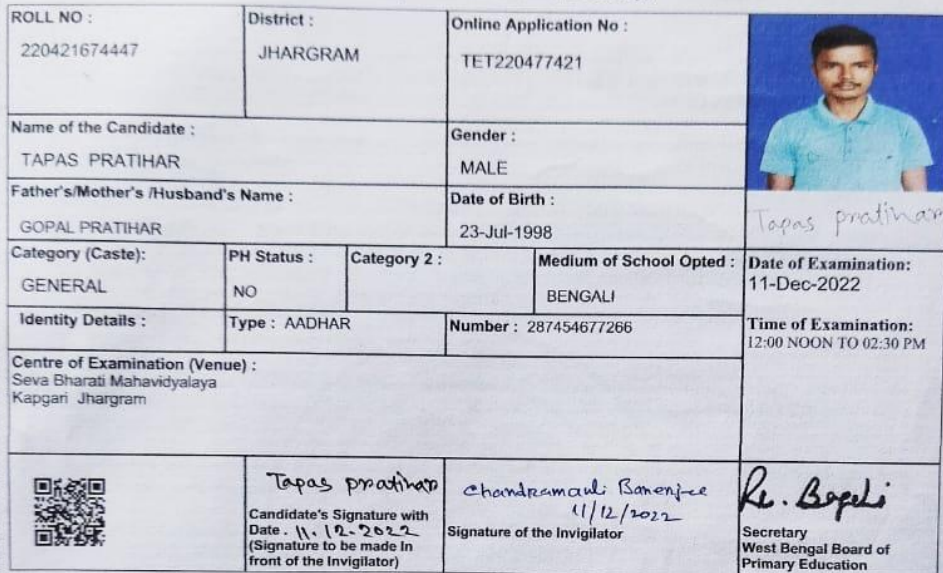 ROLL NO :
220421674447
District :
JHARGRAM
Online Application No :
TET220477421
Name of the Candidate :
TAPAS PRATIHAR
Gender :
MALE
Father's/Mother's /Husband's Name :
GOPAL PRATIHAR
Date of Birth :
23-Jul-1998
Tapas pratihar
Category (Caste):
GENERAL
PH Status :
NO
Category 2 :
Medium of School Opted :
BENGALI
Date of Examination:
11-Dec-2022
Identity Details :
Type : AADHAR
Number : 287454677266
Time of Examination:
12:00 NOON TO 02:30 PM
Centre of Examination (Venue) :
Seva Bharati Mahavidyalaya
Kapgari Jhargram
Tapas pratihar
Candidate's Signature with
Date . 11.12.2022
(Signature to be made In
front of the Invigilator)
Chandramauli Banerjee
11/12/2022
Signature of the Invigilator
Secretary
West Bengal Board of
Primary Education